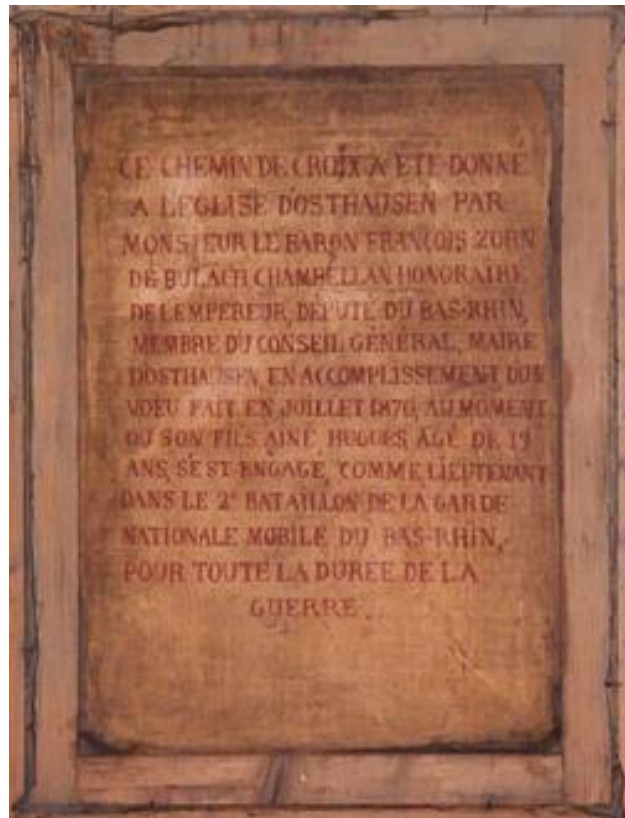 CE CHEMIN DE CROIX A ETE DONNÉ
A LEGLISE DOSTHAUSEN PAR
MONSIEUR LE BARON FRANÇOIS ZORN
DE BULACH CHAMBELLAN HONORAIRE
DE LEMPEREUR, DÉPUTÉ DU BAS-RHIN,
MEMBRE DU CONSEIL GÉNÉRAL, MAIRE
DOSTHAUSEN, EN ACCOMPLISSEMENT DUN
VOEU FAIT EN JUILLET 1870, AU MOMENT
OU SON FILS AINÉ HUGUES ÂGÉ DE 19
ANS, SEST ENGAGÉ, COMME LIEUTENANT
DANS LE 2e BATAILLON DE LA GARDE
NATIONALE MOBILE DU BAS-RHIN,
POUR TOUTE LA DURÉE DE LA
GUERRE.